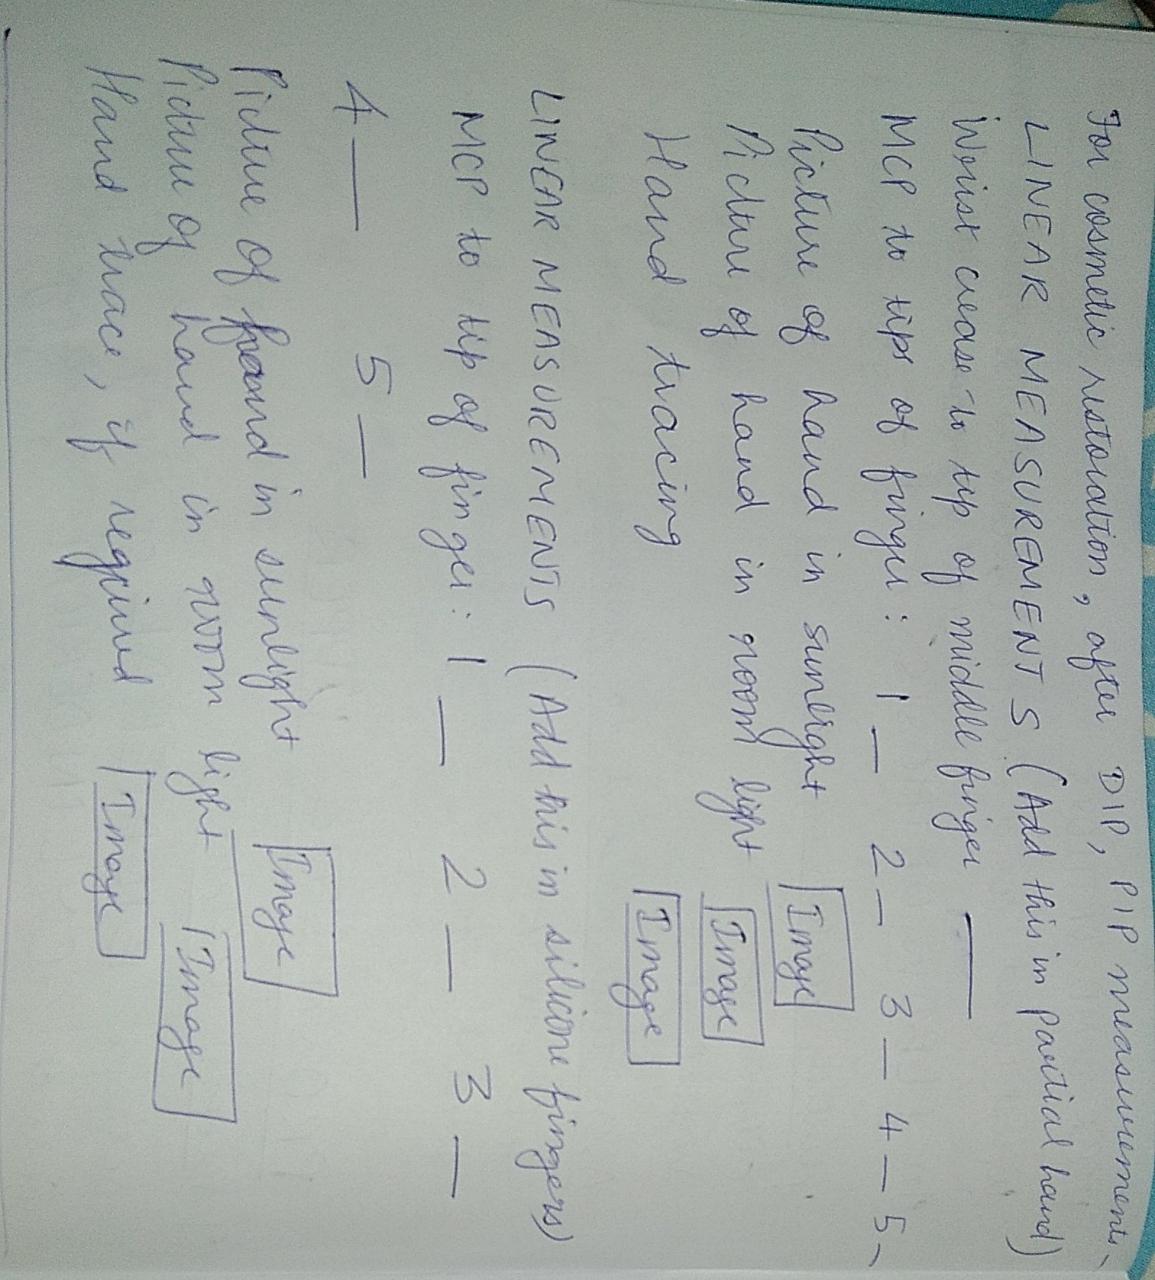 For cosmetic restoration, after DIP, PIP measurements-
LINEAR MEASUREMENTS (Add this in partial hand)
Wrist crease to tip of middle finger —
MCP to tips of finger: 1 _ 2 _ 3 _ 4 _ 5 _
Picture of hand in sunlight Image
Picture of hand in room light Image
Hand tracing Image
LINEAR MEASUREMENTS (Add this in silicone fingers)
MCP to tip of finger: 1 _ 2 _ 3 _
4 _ 5 _
Picture of hand in sunlight Image
Picture of hand in room light Image
Hand trace, if required Image